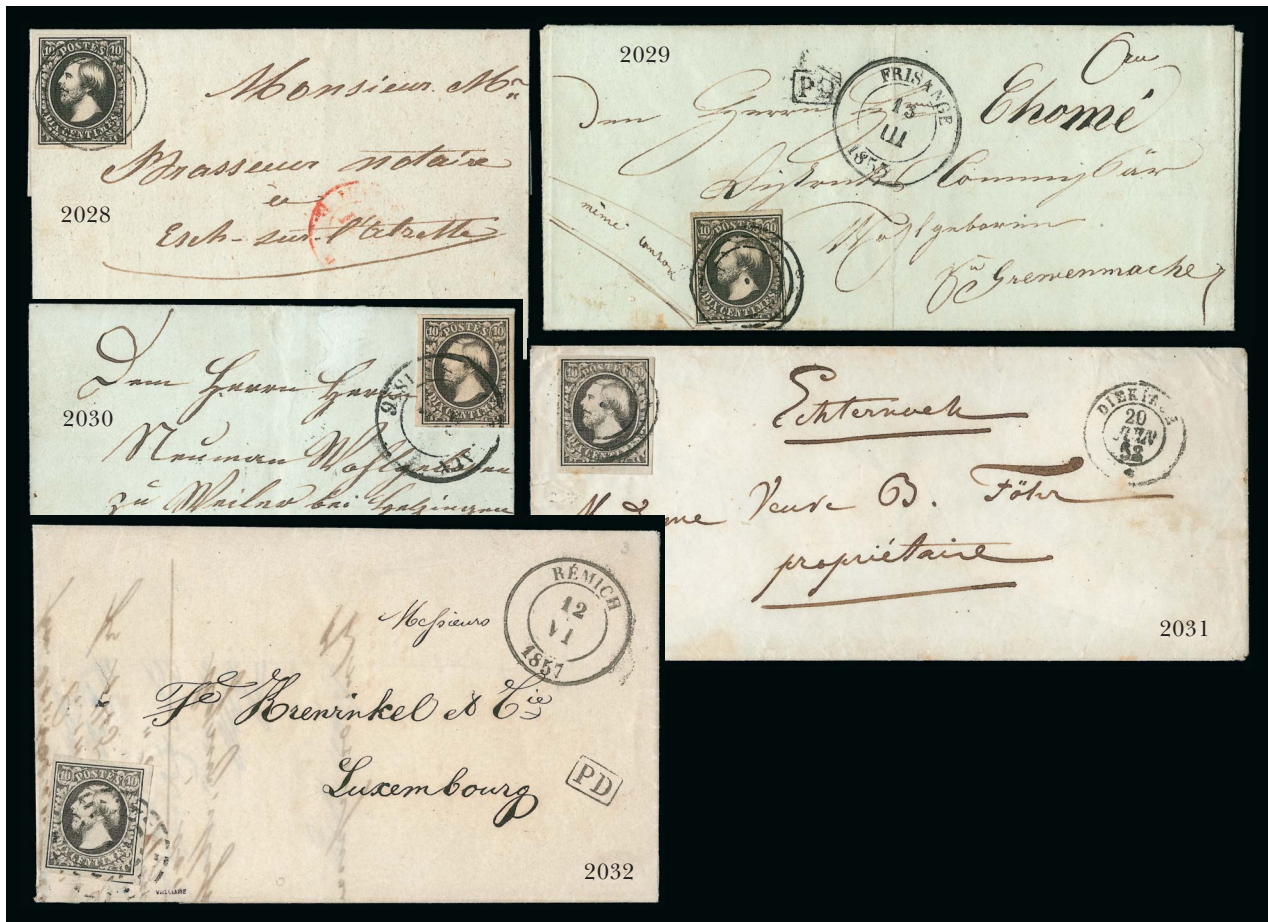 POSTES
10 10
DIX CENTIMES
Monsieur Mr
Brasseur notaire
à
Esch-sur-l'Alzette
2028
2029
PD
FRISANGE
13
III
185
den Herrn
Thomé
Distrikts Commissär
Wohlgeboren
zu Grewenmacher
même
10 POSTES 10
DIX CENTIMES
2030
10 POSTES 10
DIX CENTIMES
1856
Dem Herrn Herr
Neuman Wohlgeboren
zu Weiler bei
10 POSTES 10
DIX CENTIMES
Echternach
DIEKIRCH
20
Veuve B. Föhr
propriétaire
2031
RÉMICH
12
VI
1857
Messieurs
Fs Krewinkel & Cie
Luxembourg
PD
10 POSTES 10
DIX CENTIMES
2032